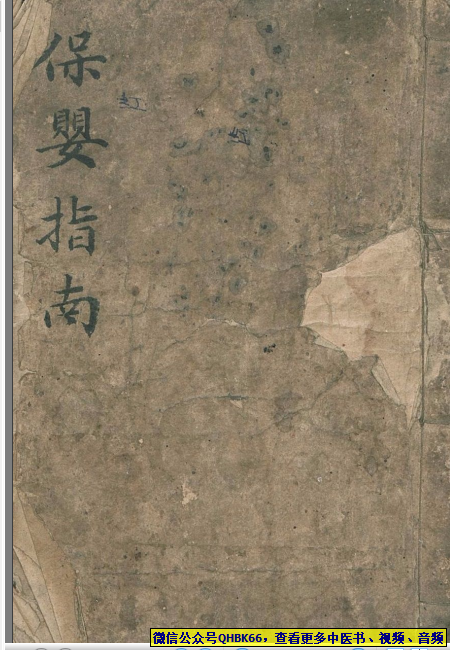 保嬰指南
紅
紅
微信公众号QHBK66，查看更多中医书、视频、音频